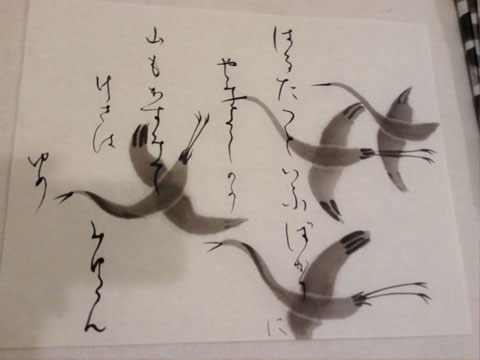 はるたつといふばかりに
やみよしのの
山もかすみて
けさは
みゆらん
ゆり